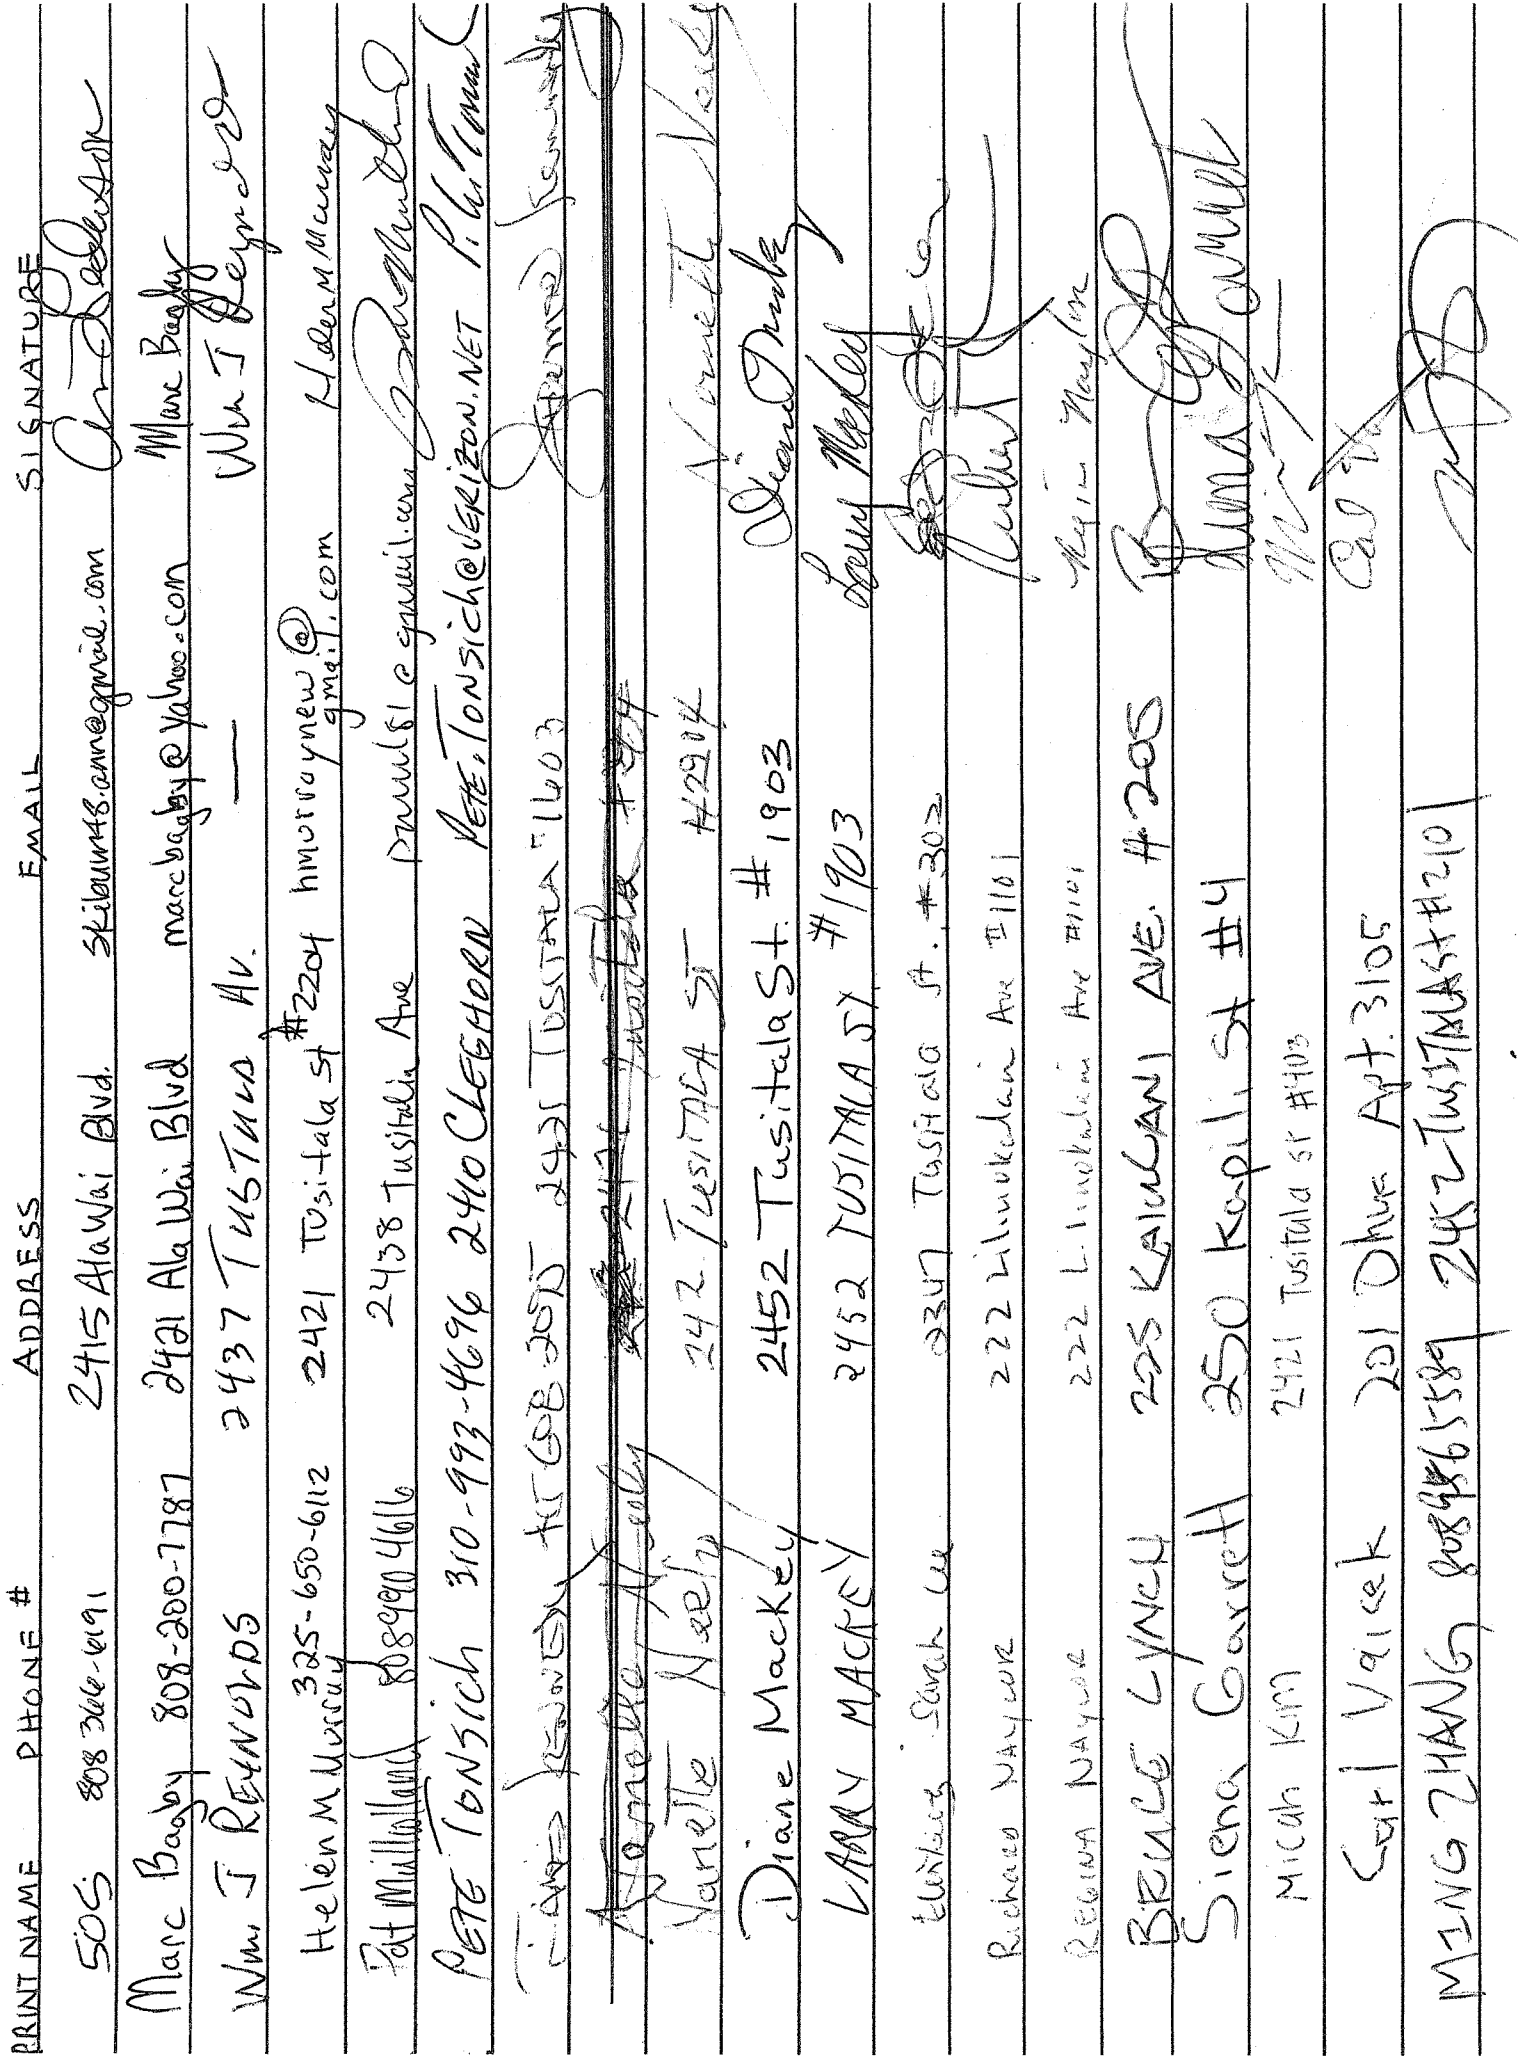 PRINT NAME PHONE # ADDRESS EMAIL SIGNATURE
505 808 366-6191 2415 Ala Wai Blvd. skibum48.ann@gmail.com
Marc Bagby 808-200-7787 2421 Ala Wai Blvd marcbagby@yahoo.com Marc Bagby
Wm. J REYNOLDS 2437 Av. — Wm J Reynolds
Helen M Murray 325-650-6112 2421 Tusitala St #2204 hmurraynew@gmail.com Helen M Murray
Pat Mulholland 808 990 4616 2438 Tusitala Ave pmul81@gmail.com
PETE TONSICH 310-993-4696 2440 CLEGHORN PETE.TONSICH@VERIZON.NET
2421 TUSITALA #1603
Nanette Neely #2904
Nanette Neely 242 TUSITALA ST #2904
Diane Mackey 2452 Tusitala St. #1903
LARRY MACKEY 2452 TUSITALA ST #1903 Larry Mackey
Sarah Lee 2347 Tusitala St. #302
Richard NAYLOR 222 Liliuokalani Ave #1101
REGINA NAYLOR 222 Liliuokalani Ave #1101
BRUCE LYNCH 225 KAIULANI AVE. #205
Siena Garrett 250 Kapili St #4
Micah Kim 2421 Tusitala St #403
Carl Vaiek 201 Ohua Apt. 3105
MING ZHANG 2452 TUSITALA St #2101